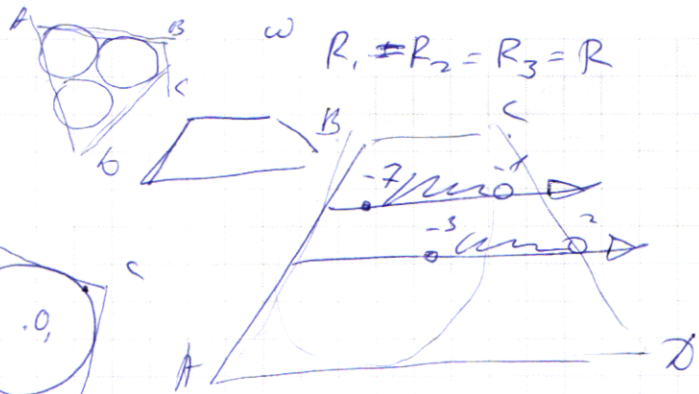 A
B
ω
R₁ = R₂ = R₃ = R
C
B
C
-7
-3
2
C
.O₁
A
D